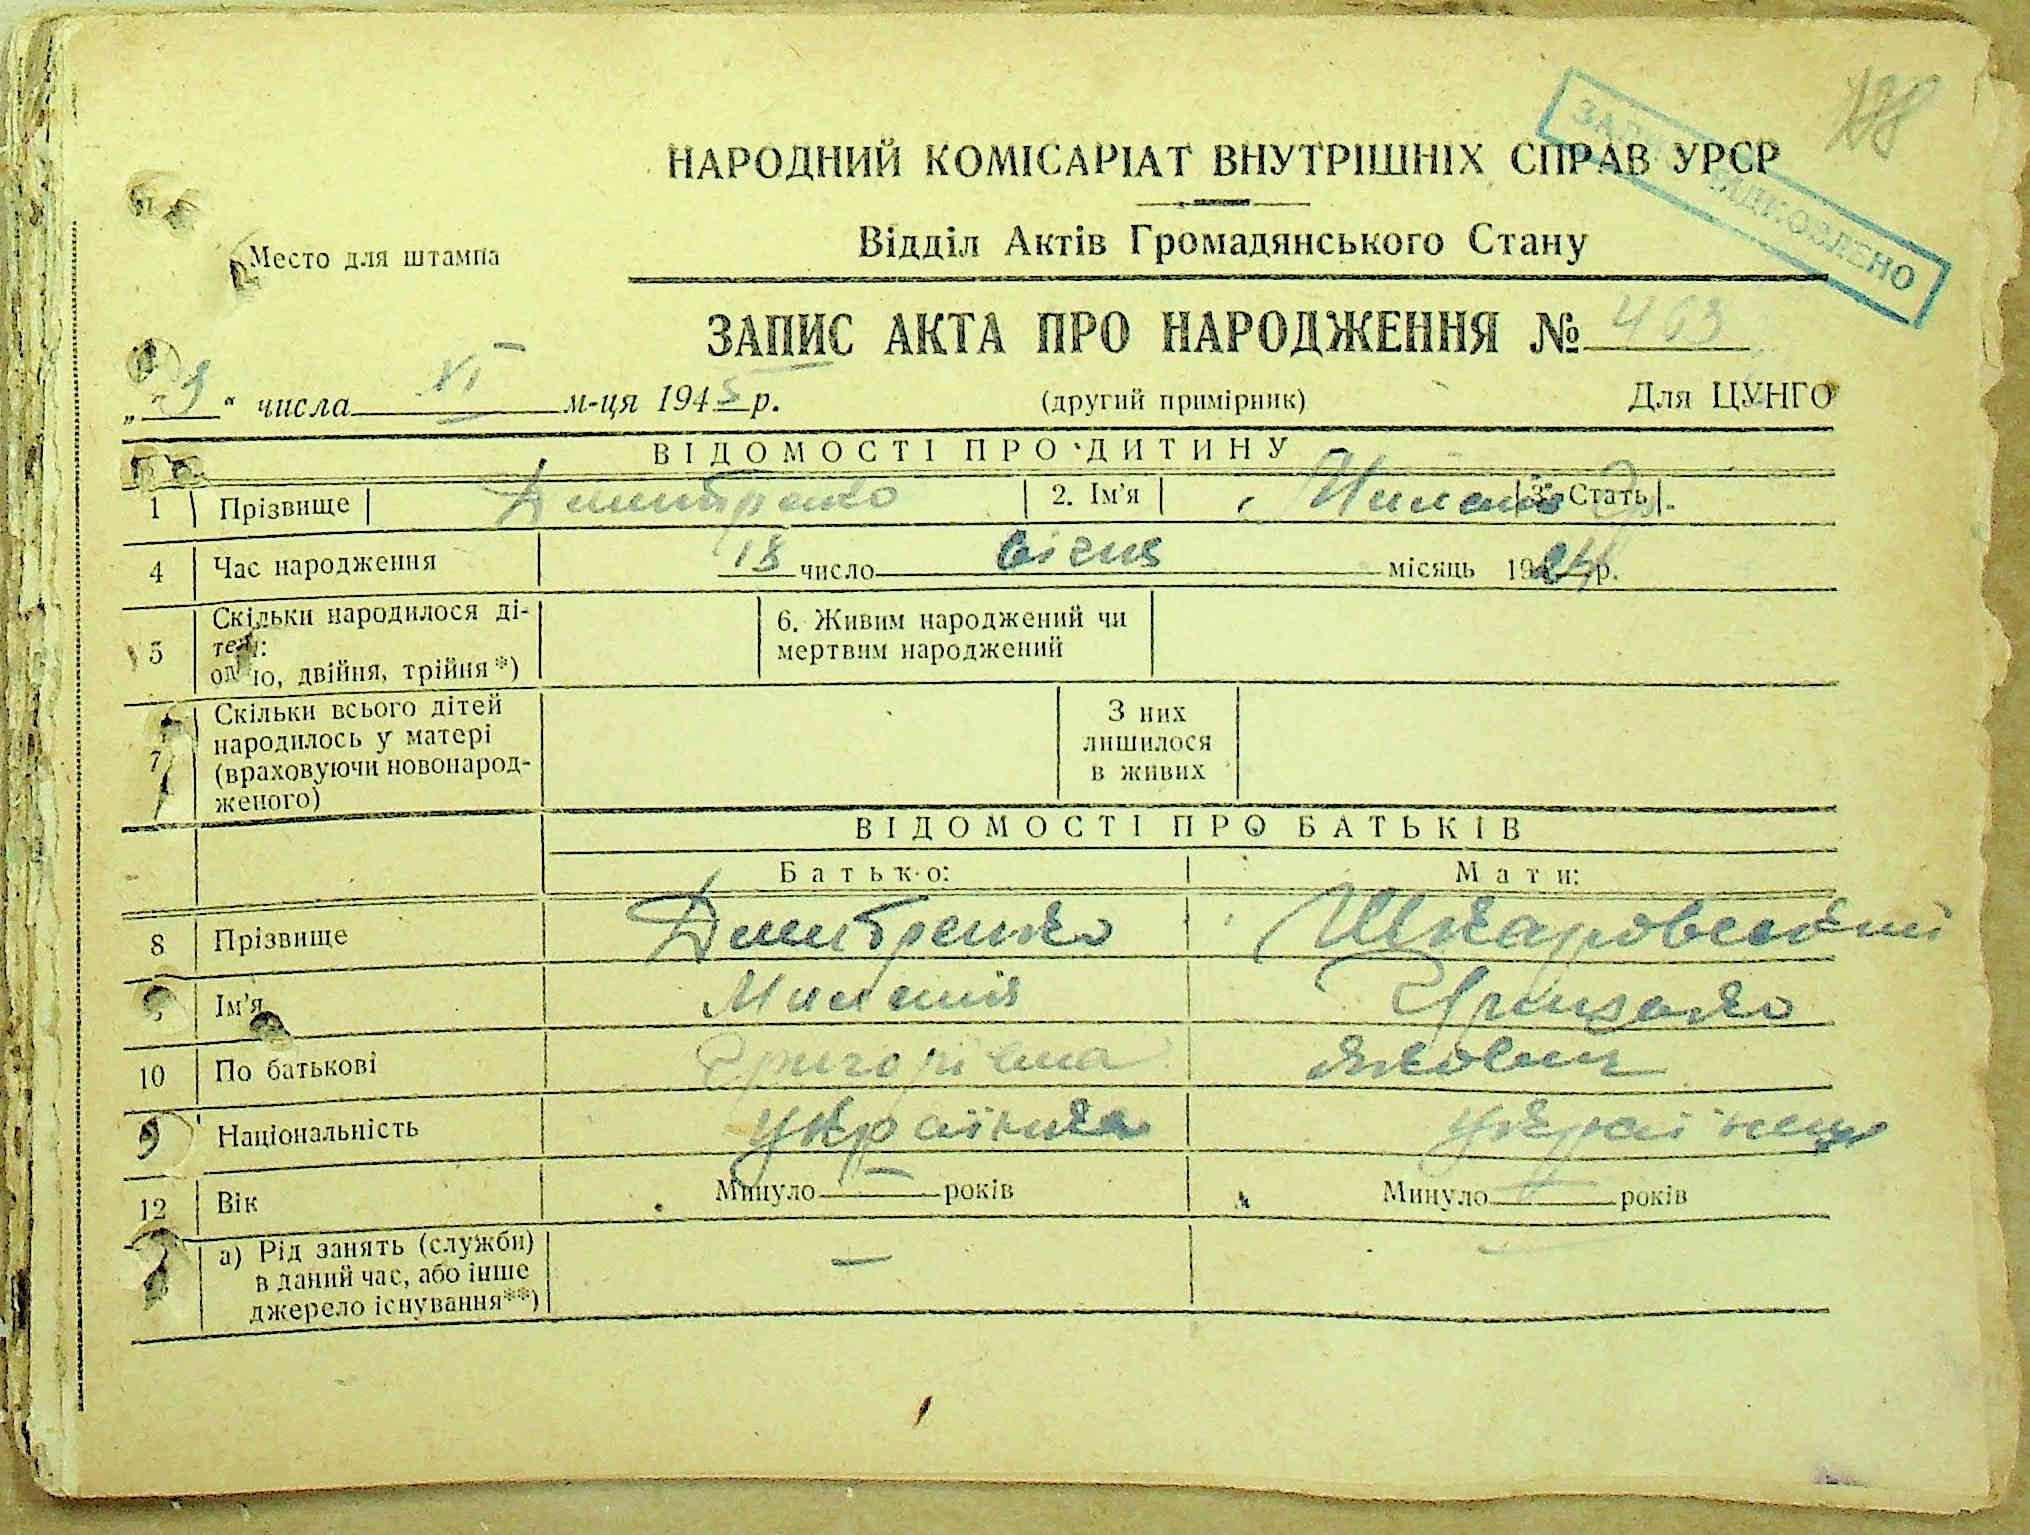 188
ЗАПИС ВІДНОВЛЕНО
НАРОДНИЙ КОМІСАРІАТ ВНУТРІШНІХ СПРАВ УРСР
Место для штампа
Відділ Актів Громадянського Стану
ЗАПИС АКТА ПРО НАРОДЖЕННЯ № 463
„ 9 “ числа XI м-ця 1945 р. (другий примірник) Для ЦУНГО
ВІДОМОСТІ ПРО ДИТИНУ
1 Прізвище Дмитренко 2. Ім'я 3. Стать
4 Час народження 18 число січня місяць 1924 р.
5 Скільки народилося ді-
тей:
одно, двійня, трійня*)
6. Живим народжений чи
мертвим народжений
7 Скільки всього дітей
народилось у матері
(враховуючи новонарод-
женого)
З них
лишилося
в живих
ВІДОМОСТІ ПРО БАТЬКІВ
Батько: Мати:
8 Прізвище Дмитренко Шкаровський
Ім'я
10 По батькові Григорівна Якович
Національність українка українець
12 Вік Минуло — років Минуло — років
а) Рід занять (служби)
в даний час, або інше
джерело існування**)
— —